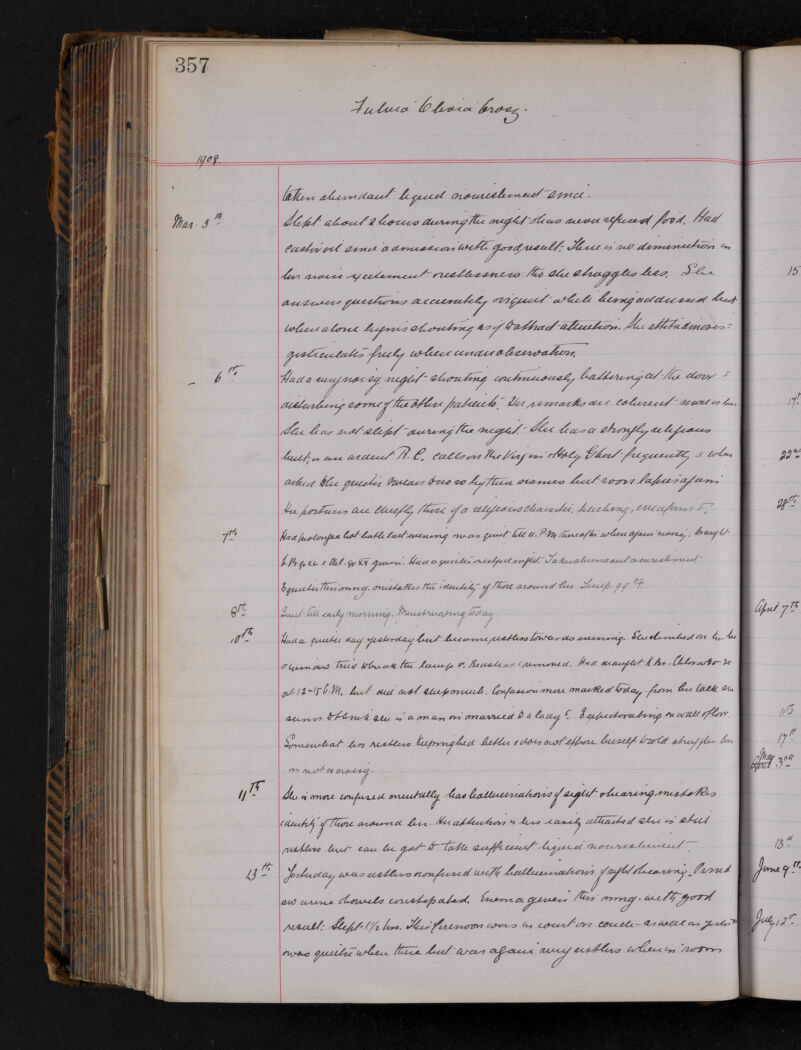 357
Fulvia Olivia Crosg.
1908.
taken abundant liquid nourishment since.
Mar. 5th Slept about 2 hours during the night & has never refused food. Had
castor oil since admission with good result. There is no diminution in
her noise excitement restlessness tho she struggles less. She
answers questions accurately & is quiet while being addressed but
when alone begins shouting as if to attract attention. She attitudinises &
gesticulates freely when under observation.
– 6th Had a very noisy night shouting continuously battering at the door &
disturbing some of the other patients. Her remarks are coherent
She has not slept during the night. She has a strongly religious
is an ardent R.C. calls on the Virgin & Holy Ghost frequently & when
asked to be quieter swears to do so by their names but soon lapses again
Her postures are chiefly those of a religious character,
7th Had prolonged hot bath last evening & was quiet till 11 P.M. thereafter when again noisy. Draught
K Br gr xl & Chl. gr xx given. Had a quieter night. Taken abundant nourishment
& quieter this mng. mistakes the identity of those around her. Temp. 99
8th Quiet till early morning. Menstruating today.
10th Had a quieter day yesterday but became restless towards evening. She climbed on
tried to break the lamp. Bedstead removed. Had draught K Br. Chlor
at 12-15 A.M. but did not sleep much. Confusion more marked today from her talk she
seems to think she is a man or married to a lady. Expectorating on wall & floor.
Somewhat less restless keeping bed better & does not expose herself struggles less
is not so noisy.
11th She is more confused mentally has hallucinations of sight & hearing mistakes
identity of those around her. Her attention is less easily attracted she is still
restless but can be got to take sufficient liquid nourishment.
13th Yesterday was restless & confused with hallucinations of sight & hearing. Passed
no urine & bowels constipated. Enema given this mng. with good
result. Slept 1½ hrs. This forenoon was in court on couch as well as
& was quieter when there but was again very restless when in room
15
17th
22nd
28th
April 7th
11th
17th
May 3rd
13th
June 9th
July 12th